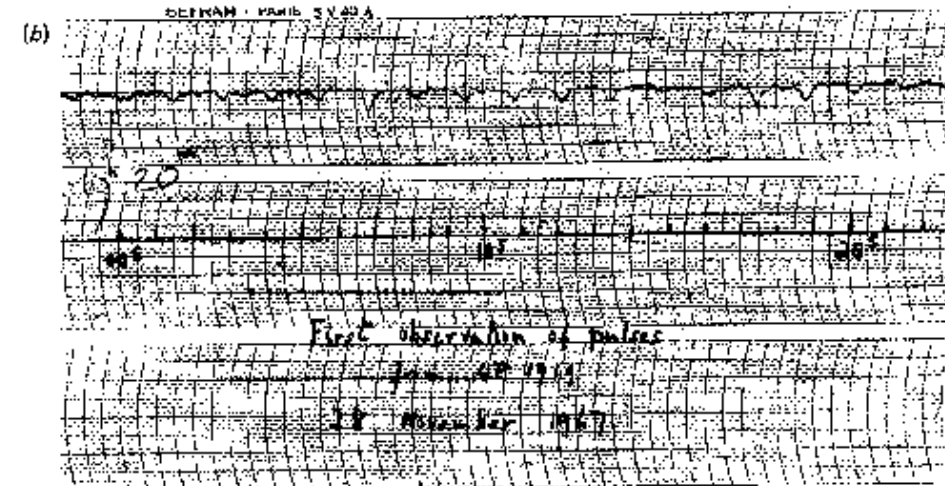 (b)
19ʰ 20ᵐ
00ˢ 10ˢ 20ˢ
First observation of pulses
from CP 1919
28 November 1967.